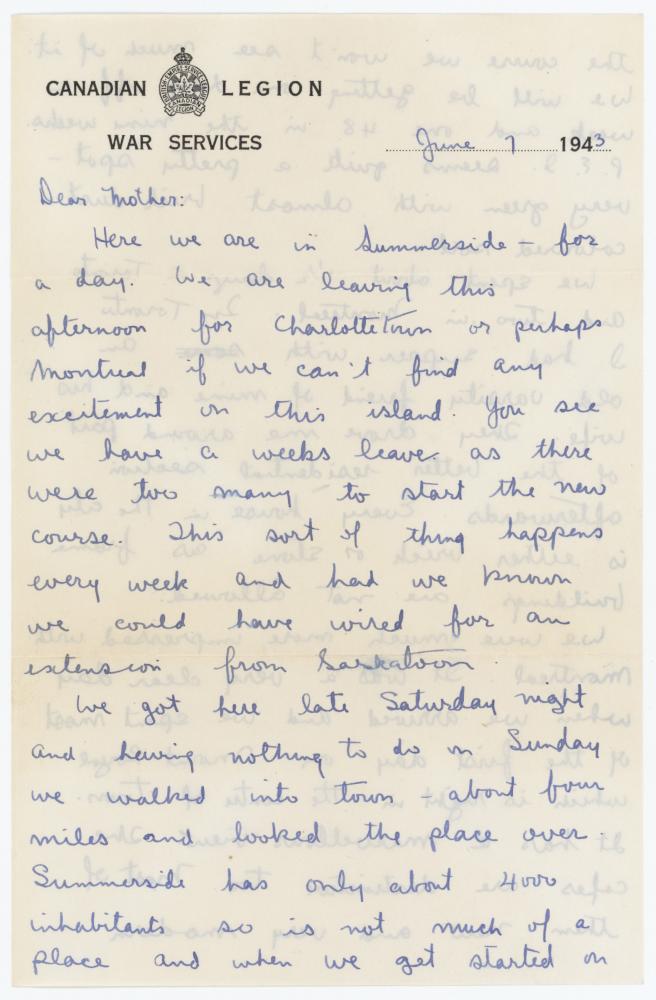 CANADIAN LEGION
WAR SERVICES
June 7 1943
Dear Mother:
Here we are in Summerside - for
a day. We are leaving this
afternoon for Charlottetown or perhaps
Montreal if we can't find any
excitement on this island. You see
we have a weeks leave as there
were two many to start the new
course. This sort of thing happens
every week and had we known
we could have wired for an
extension from Saskatoon.
We got here late Saturday night
and having nothing to do on Sunday
we walked into town - about four
miles and looked the place over.
Summerside has only about 4000
inhabitants so is not much of a
place and when we get started on